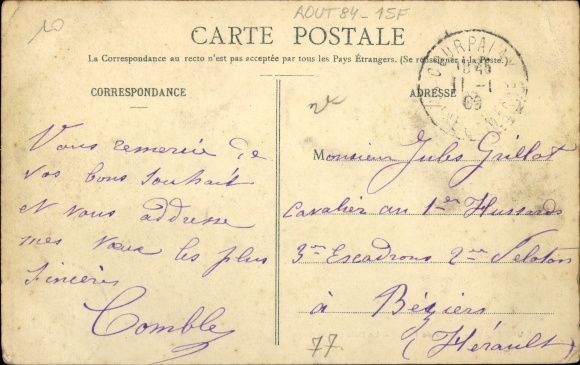 10
AOUT 84 - 15F
CARTE POSTALE
La Correspondance au recto n'est pas acceptée par tous les Pays Étrangers. (Se renseigner à la Poste.)
CORRESPONDANCE
ADRESSE
COURPALAY
11 - 1
09
Vous remercie de
vos bons souhait
et vous addresse
mes vœux les plus
sincères
Comble
Monsieur Jules Grillot
Cavalier au 1er Hussards
3me Escadrons 2me Peloton
à Béziers
(Hérault)
77